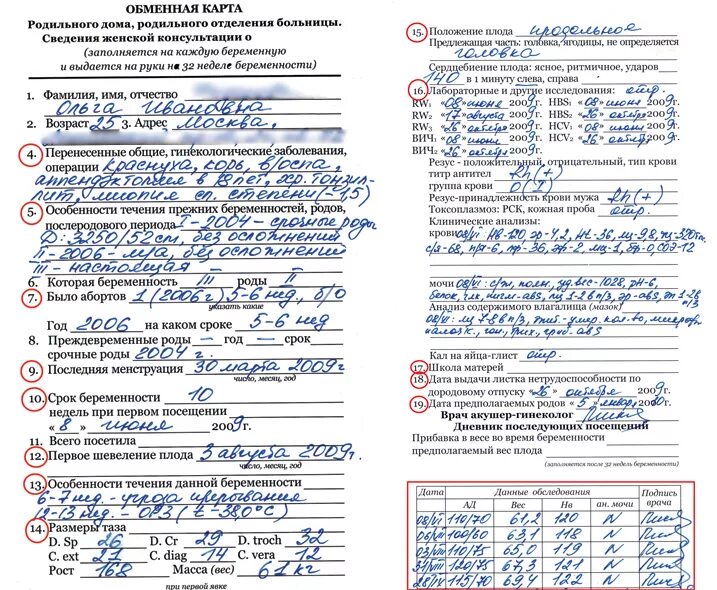 ОБМЕННАЯ КАРТА
Родильного дома, родильного отделения больницы.
Сведения женской консультации о
(заполняется на каждую беременную
и выдается на руки на 32 неделе беременности)
1. Фамилия, имя, отчество
Ольга Ивановна
2. Возраст 25 3. Адрес Москва,
4. Перенесенные общие, гинекологические заболевания,
операции краснуха, корь, в/оспа,
аппендэктомия в 12 лет, хр. тонзил-
лит, миопия сл. степени (-1,5)
5. Особенности течения прежних беременностей, родов,
послеродового периода I - 2004 - срочные роды
Д: 3250/52см, без осложнений
II - 2006 - м/а, без осложнений
III - настоящая
6. Которая беременность III роды II
7. Было абортов 1 (2006 г) 5-6 нед., б/о
указать какие
Год 2006 на каком сроке 5-6 нед
8. Преждевременные роды — год — срок
срочные роды 2004 г.
9. Последняя менструация 30 марта 2009 г
число, месяц, год
10. Срок беременности 10
недель при первом посещении
« 8 » июня 2009г.
11. Всего посетила
12. Первое шевеление плода 3 августа 2009 г.
число, месяц, год
13. Особенности течения данной беременности
6-7 нед. - угроза прерывания
12-13 нед. - ОРЗ (t - 38,0°С)
14. Размеры таза
D. Sp 26 D. Cr 29 D. troch 32
C. ext 21 C. diag 14 C. vera 12
Рост 168 Масса (вес) 61 кг
при первой явке
15. Положение плода продольное
Предлежащая часть: головка, ягодицы, не определяется
головка
Сердцебиение плода: ясное, ритмичное, ударов
140 в 1 минуту слева, справа
16. Лабораторные и другие исследования: отр.
RW₁ «08» июня 2009г. HBS₁ «08» июня 2009г.
RW₂ «17» августа 2009г. HBS₂ «26» октября 2009г.
RW₃ «26» октября 2009г. HCV₁ «08» июня 2009г.
ВИЧ₁ «08» июня 2009г. HCV₂ «26» октября 2009г.
ВИЧ₂ «26» октября 2009г.
Резус - положительный, отрицательный, тип крови
титр антител Rh(+)
группа крови 0(I)
Резус-принадлежность крови мужа Rh(+)
Токсоплазмоз: РСК, кожная проба отр.
Клинические анализы:
крови 08/VI НВ-120, эр-4,2, нt-36, цп-98,
с/я-68, п/я-6, СОЭ-12
мочи 08/VI: с/ж, полн, уд. вес-1028, рН-6,
белок, abs,
Анализ содержимого влагалища (мазок)
08/VI:
Кал на яйца-глист отр.
17. Школа матерей
18. Дата выдачи листка нетрудоспособности по
дородовому отпуску «26» октября 2009г.
19. Дата предполагаемых родов « 5 » январ. 2010г.
Врач акушер-гинеколог
Дневник последующих посещений
Прибавка в весе во время беременности
предполагаемый вес плода
(заполняется после 32 недель беременности)
Дата Данные обследования Подпись врача
АД Вес Нв ан. мочи
08/VI 110/70 61,2 120 N
06/VII 100/60 63,1 118 N
03/VIII 110/75 65,0 119 N
31/VIII 120/75 67,3 121 N
28/IX 115/70 69,4 122 N